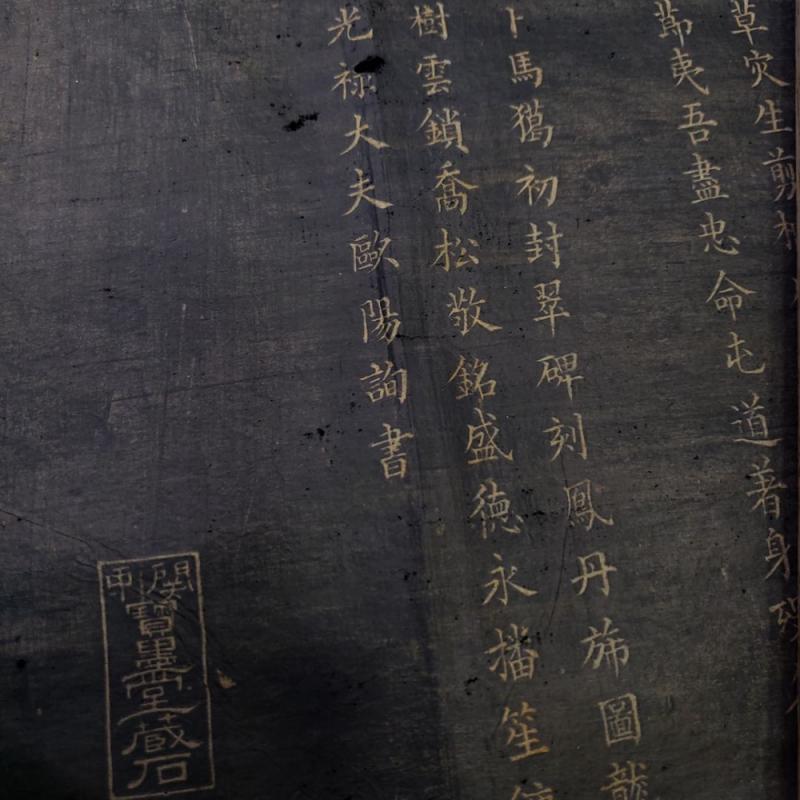 草灾生剪
節夷吾盡忠命屯道著身殁
卜馬獦初封翠碑刻鳳丹旆圖龍
樹雲鎖喬松敬銘盛德永播笙
光祿大夫歐陽詢書
関中寶墨堂藏石